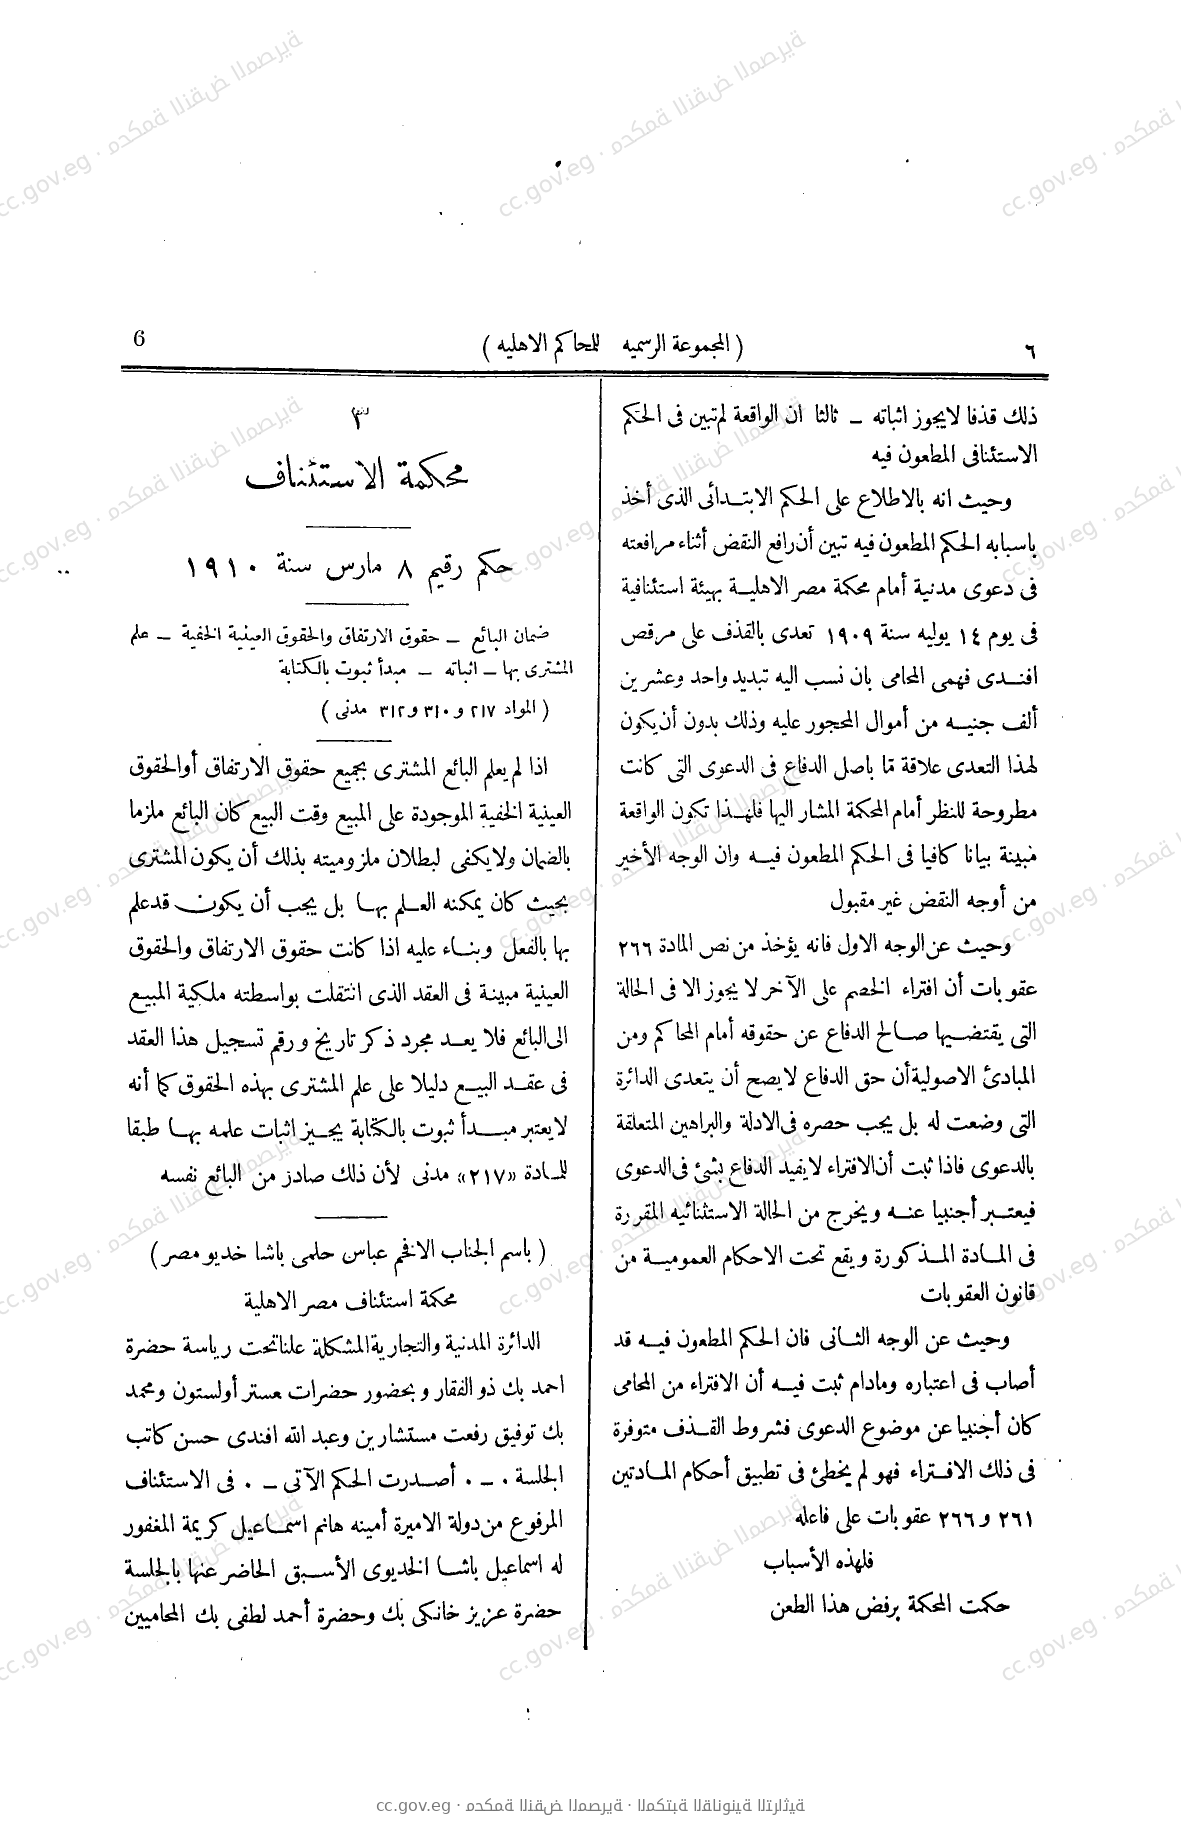 ٦
( المجموعة الرسميه للمحاكم الاهليه )
6
ذلك قذفا لايجوز اثباته – ثالثا ان الواقعة لم تبين فى الحكم
الاستئنافى المطعون فيه
وحيث انه بالاطلاع على الحكم الابتدائى الذى أخذ
باسبابه الحكم المطعون فيه تبين أن رافع النقض أثناء مرافعته
فى دعوى مدنية أمام محكمة مصر الاهلية بهيئة استئنافية
فى يوم ١٤ يوليه سنة ١٩٠٩ تعدى بالقذف على مرقص
افندى فهمى المحامى بان نسب اليه تبديد واحد وعشرين
ألف جنيه من أموال المحجور عليه وذلك بدون أن يكون
لهذا التعدى علاقة تما باصل الدفاع فى الدعوى التى كانت
مطروحة للنظر أمام المحكمة المشار اليها فلهذا تكون الواقعة
مبينة بيانا كافيا فى الحكم المطعون فيه وان الوجه الأخير
من أوجه النقض غير مقبول
وحيث عن الوجه الاول فانه يؤخذ من نص المادة ٢٦٦
عقوبات أن افتراء الخصم على الآخر لا يجوز الا فى الحالة
التى يقتضيها صالح الدفاع عن حقوقه أمام المحاكم ومن
المبادئ الاصولية أن حق الدفاع لا يصح أن يتعدى الدائرة
التى وضعت له بل يجب حصره فى الادلة والبراهين المتعلقة
بالدعوى فاذا ثبت أن الافتراء لا يفيد الدفاع بشئ فى الدعوى
فيعتبر أجنبيا عنه ويخرج من الحالة الاستثنائيه المقررة
فى المادة المذكورة ويقع تحت الاحكام العمومية من
قانون العقوبات
وحيث عن الوجه الثانى فان الحكم المطعون فيه قد
أصاب فى اعتباره ومادام ثبت فيه أن الافتراء من المحامى
كان أجنبيا عن موضوع الدعوى فشروط القذف متوفرة
فى ذلك الافتراء فهو لم يخطئ فى تطبيق أحكام المادتين
٢٦١ و٢٦٦ عقوبات على فاعله
فلهذه الأسباب
حكمت المحكمة برفض هذا الطعن
٣
محكمة الاستئناف
حكم رقيم ٨ مارس سنة ١٩١٠
ضمان البائع – حقوق الارتفاق والحقوق العينية الخفية – علم
المشترى بها – اثباته – مبدأ ثبوت بالكتابة
( المواد ٢١٧ و٣١٠ و٣١٢ مدنى )
اذا لم يعلم البائع المشترى بجميع حقوق الارتفاق أوالحقوق
العينية الخفية الموجودة على المبيع وقت البيع كان البائع ملزما
بالضمان ولا يكفى لبطلان ملزوميته بذلك أن يكون المشترى
بحيث كان يمكنه العلم بها بل يجب أن يكون قد علم
بها بالفعل وبناء عليه اذا كانت حقوق الارتفاق والحقوق
العينية مبينة فى العقد الذى انتقلت بواسطته ملكية المبيع
الى البائع فلا يعد مجرد ذكر تاريخ ورقم تسجيل هذا العقد
فى عقد البيع دليلا على علم المشترى بهذه الحقوق كما أنه
لا يعتبر مبدأ ثبوت بالكتابة يجيز اثبات علمه بها طبقا
للمادة «٢١٧» مدنى لأن ذلك صادر من البائع نفسه
( باسم الجناب الافخم عباس حلمى باشا خديو مصر )
محكمة استئناف مصر الاهلية
الدائرة المدنية والتجارية المشكلة علنا تحت رياسة حضرة
احمد بك ذو الفقار وبحضور حضرات مستر أولستون ومحمد
بك توفيق رفعت مستشارين وعبد الله افندى حسن كاتب
الجلسة ٠ – ٠ أصدرت الحكم الآتى – ٠ فى الاستئناف
المرفوع من دولة الاميرة أمينه هانم اسماعيل كريمة المغفور
له اسماعيل باشا الخديوى الأسبق الحاضر عنها بالجلسة
حضرة عزيز خانكى بك وحضرة أحمد لطفى بك المحاميين
cc.gov.eg · محكمة النقض المصرية · المكتبة القانونية التراثية